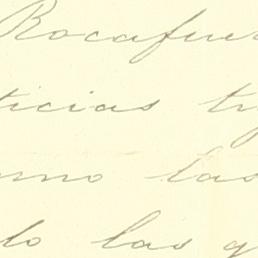 Rocafue
ticias tr
rno las
do las q